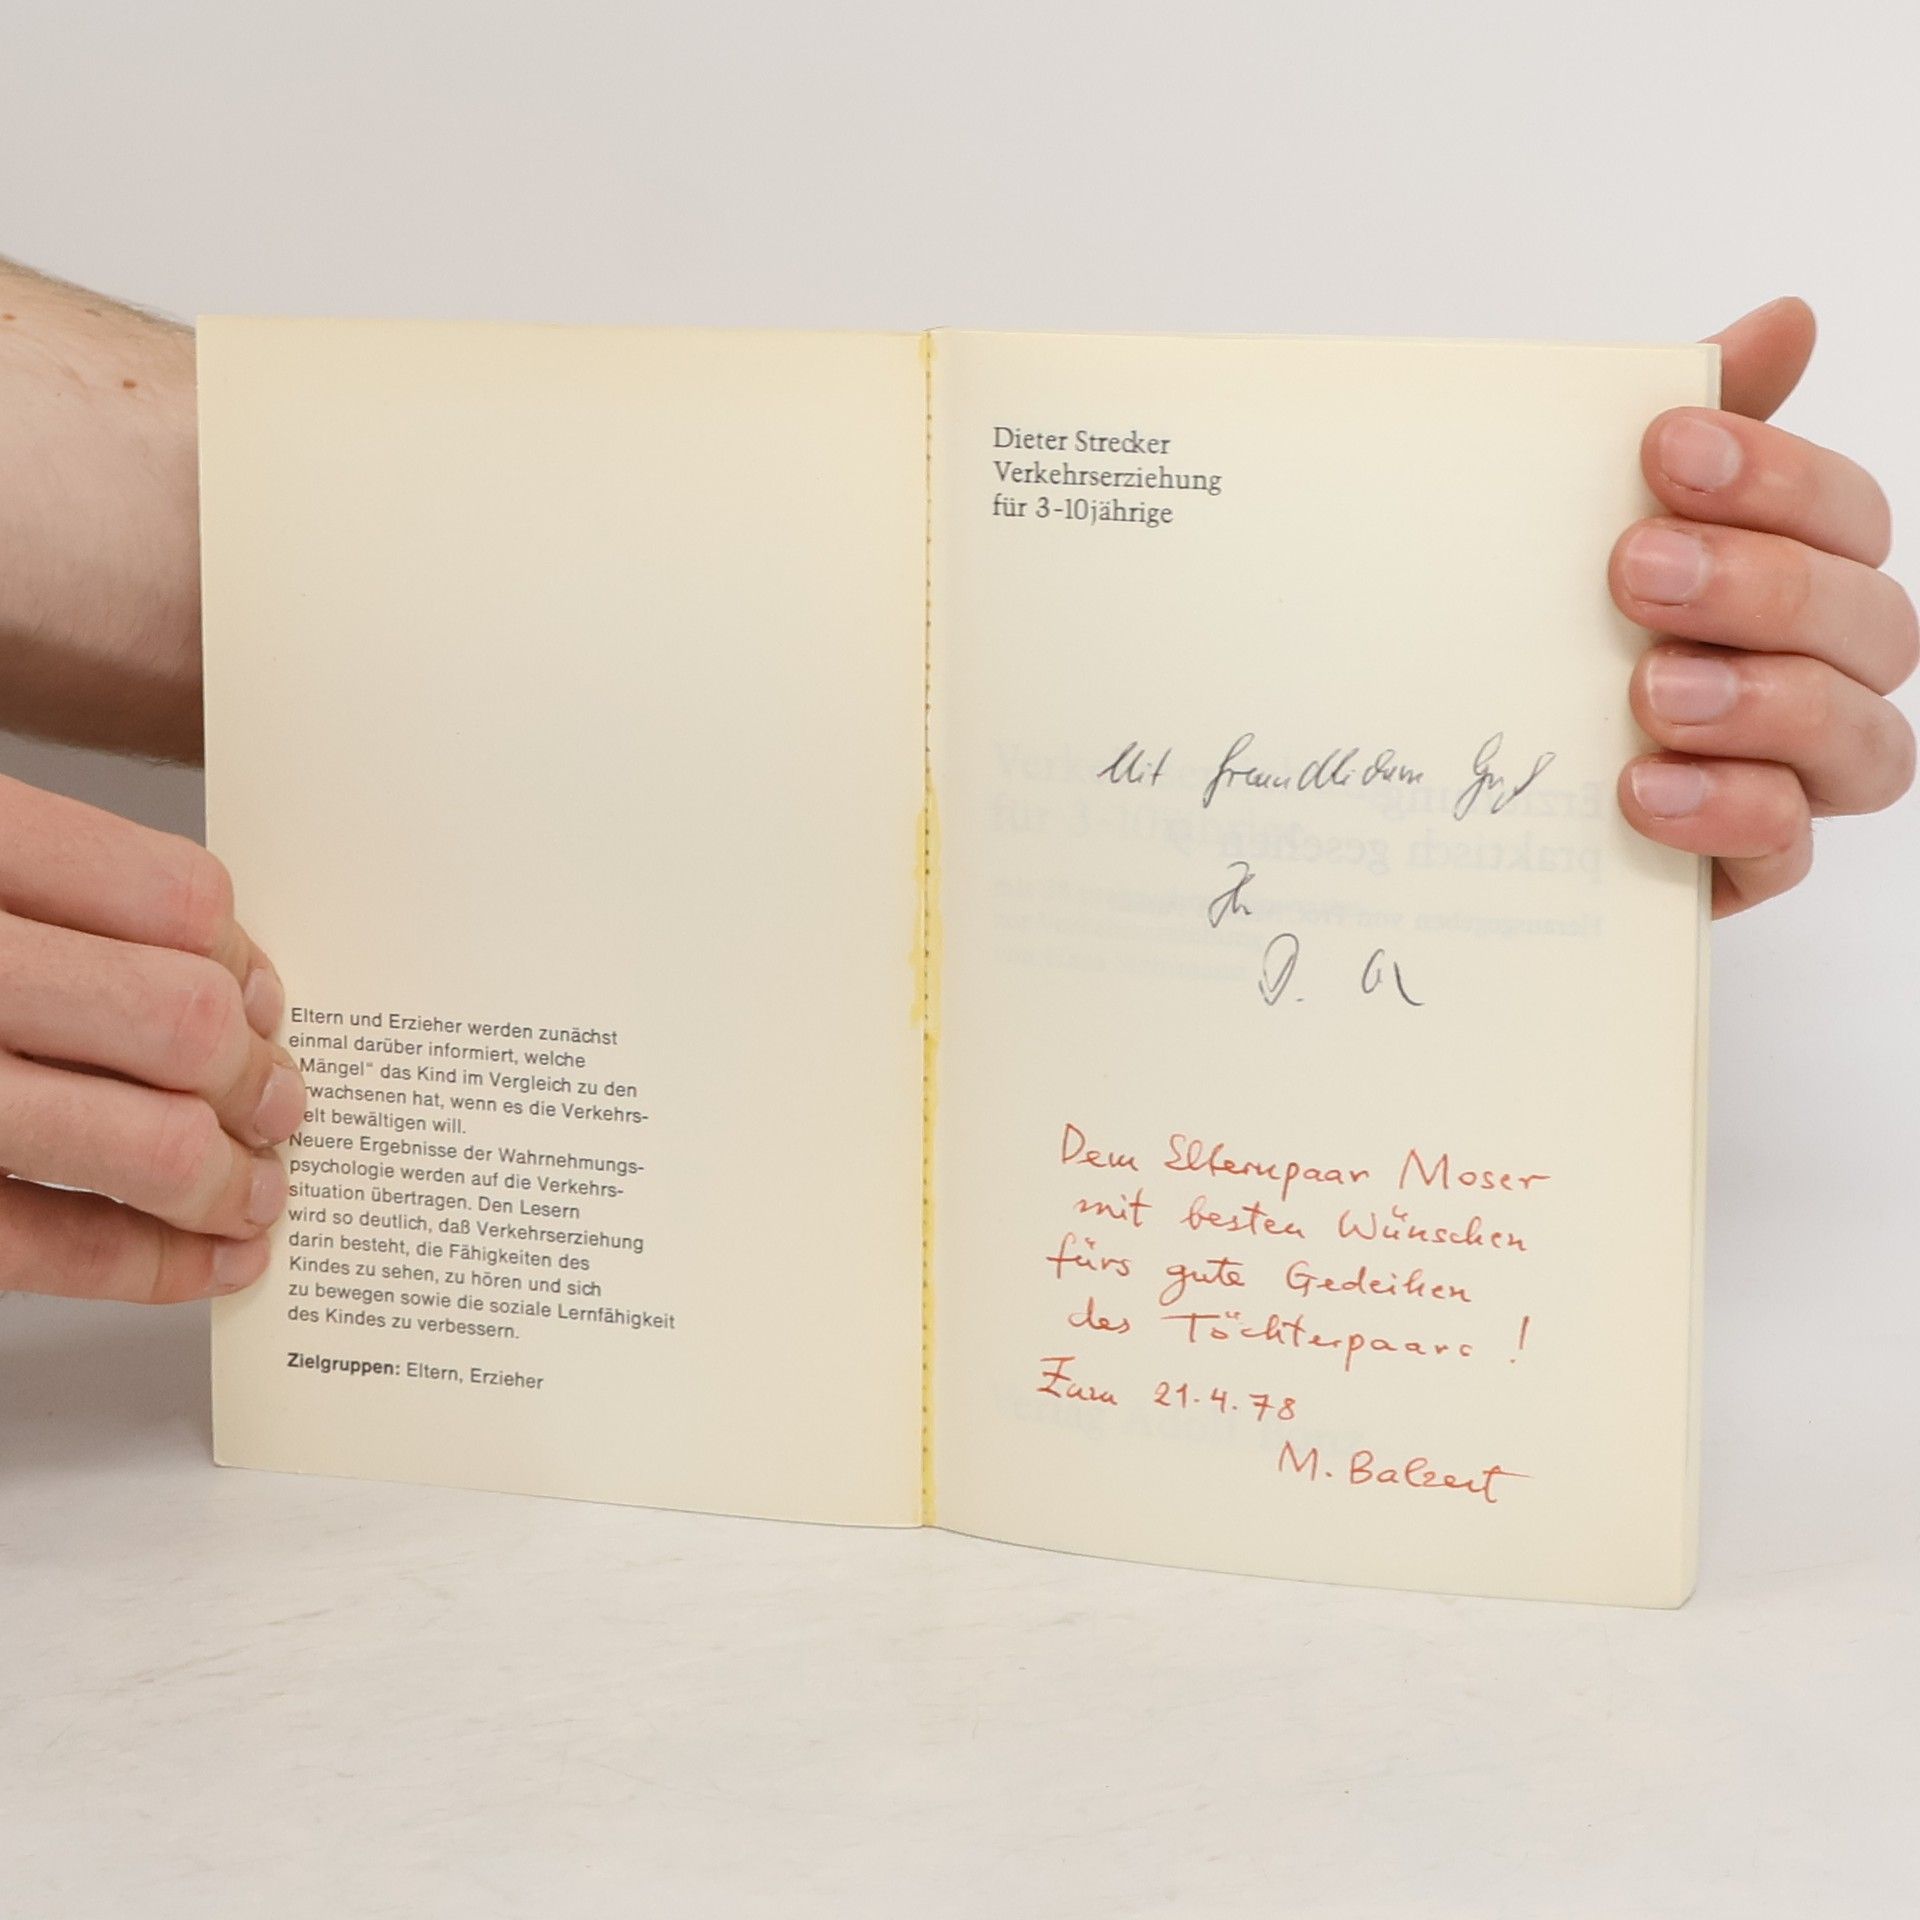 Eltern und Erzieher werden zunächst
einmal darüber informiert, welche
Mängel“ das Kind im Vergleich zu den
rwachsenen hat, wenn es die Verkehrs-
elt bewältigen will.
Neuere Ergebnisse der Wahrnehmungs-
psychologie werden auf die Verkehrs-
situation übertragen. Den Lesern
wird so deutlich, daß Verkehrserziehung
darin besteht, die Fähigkeiten des
Kindes zu sehen, zu hören und sich
zu bewegen sowie die soziale Lernfähigkeit
des Kindes zu verbessern.
Zielgruppen: Eltern, Erzieher
Dieter Strecker
Verkehrserziehung
für 3-10jährige
Mit freundlichem Gruß
Ihr
D.
Dem Elternpaar Moser
mit besten Wünschen
fürs gute Gedeihen
des Töchterpaars !
Zum 21.4.78
M. Balzert